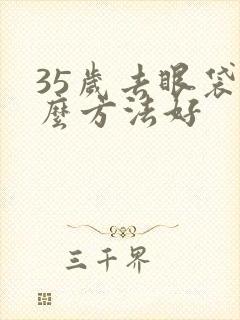 35歲去眼袋
麼方法好
三千界